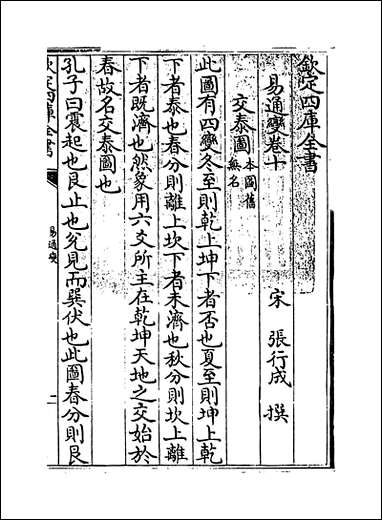 欽定四庫全書
易通變卷十
宋 張行成 撰
交泰圖本圖舊無名
此圖有四變冬至則乾上坤下者否也夏至則坤上乾
下者泰也春分則離上坎下者未濟也秋分則坎上離
下者既濟也然象用六交所主在乾坤天地之交始於
春故名交泰圖也
孔子曰震起也艮止也兊見而巽伏也此圖春分則艮
欽定四庫全書
易通變